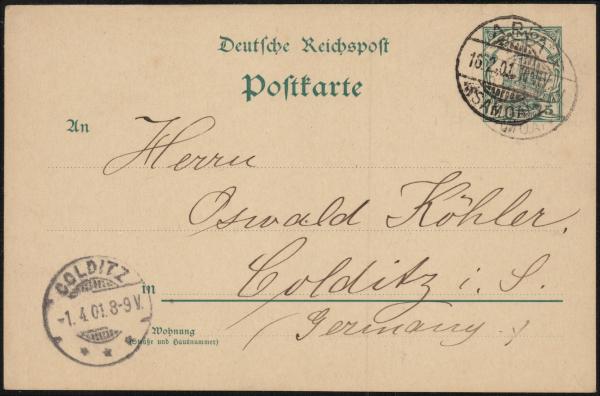 Deutsche Reichspost
Postkarte
APIA
16.2.01
SAMOA
5
An
Herrn
Oswald Köhler.
in Colditz i. S.
(Germany.)
COLDITZ
-1.4.01.8-9V.
Wohnung
(Straße und Hausnummer)